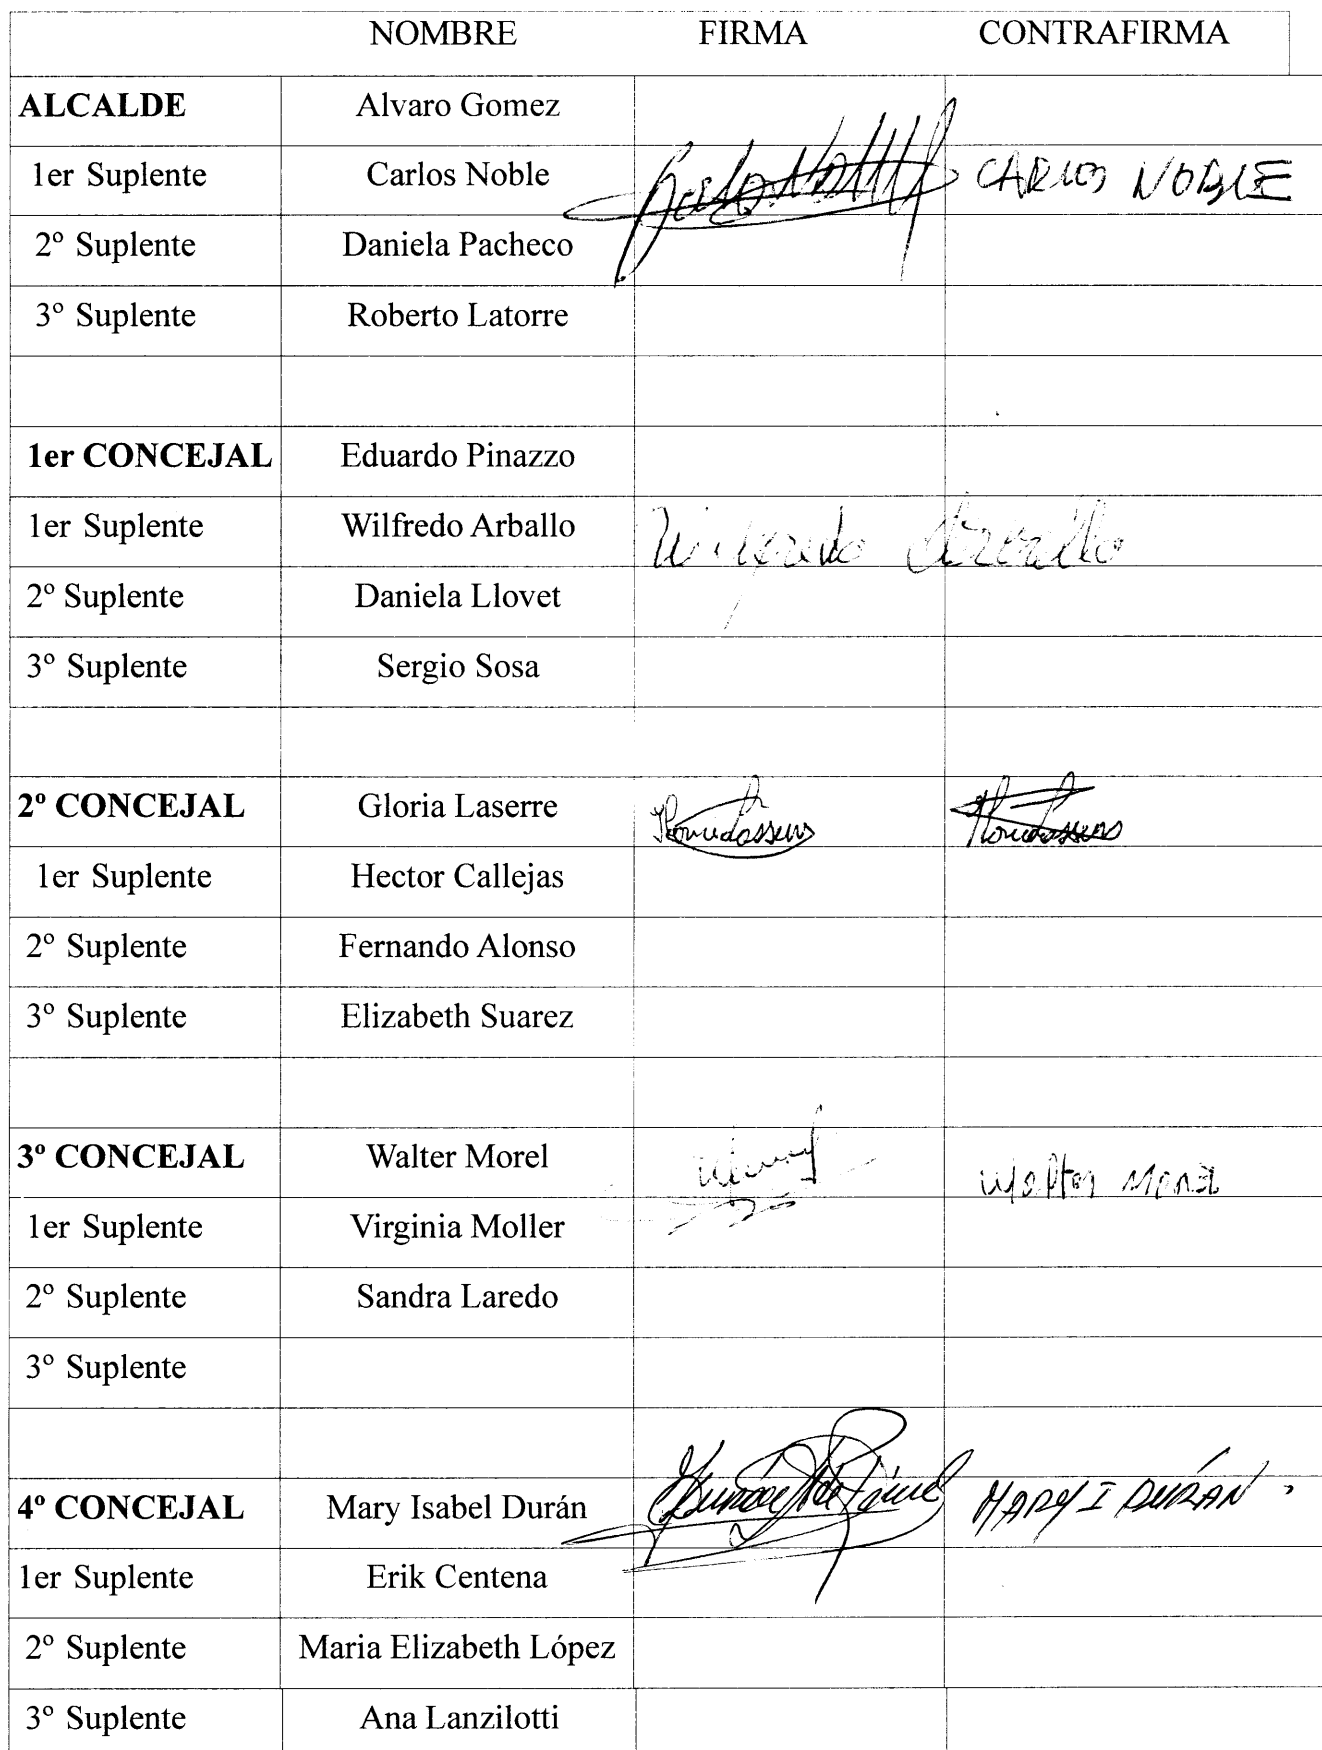 NOMBRE FIRMA CONTRAFIRMA
ALCALDE Alvaro Gomez
1er Suplente Carlos Noble CARLOS NOBLE
2º Suplente Daniela Pacheco
3º Suplente Roberto Latorre
1er CONCEJAL Eduardo Pinazzo
1er Suplente Wilfredo Arballo Wilfredo Arballo
2º Suplente Daniela Llovet
3º Suplente Sergio Sosa
2º CONCEJAL Gloria Laserre
1er Suplente Hector Callejas
2º Suplente Fernando Alonso
3º Suplente Elizabeth Suarez
3º CONCEJAL Walter Morel Walter Morel
1er Suplente Virginia Moller
2º Suplente Sandra Laredo
3º Suplente
4º CONCEJAL Mary Isabel Durán MARY I DURÁN
1er Suplente Erik Centena
2º Suplente Maria Elizabeth López
3º Suplente Ana Lanzilotti